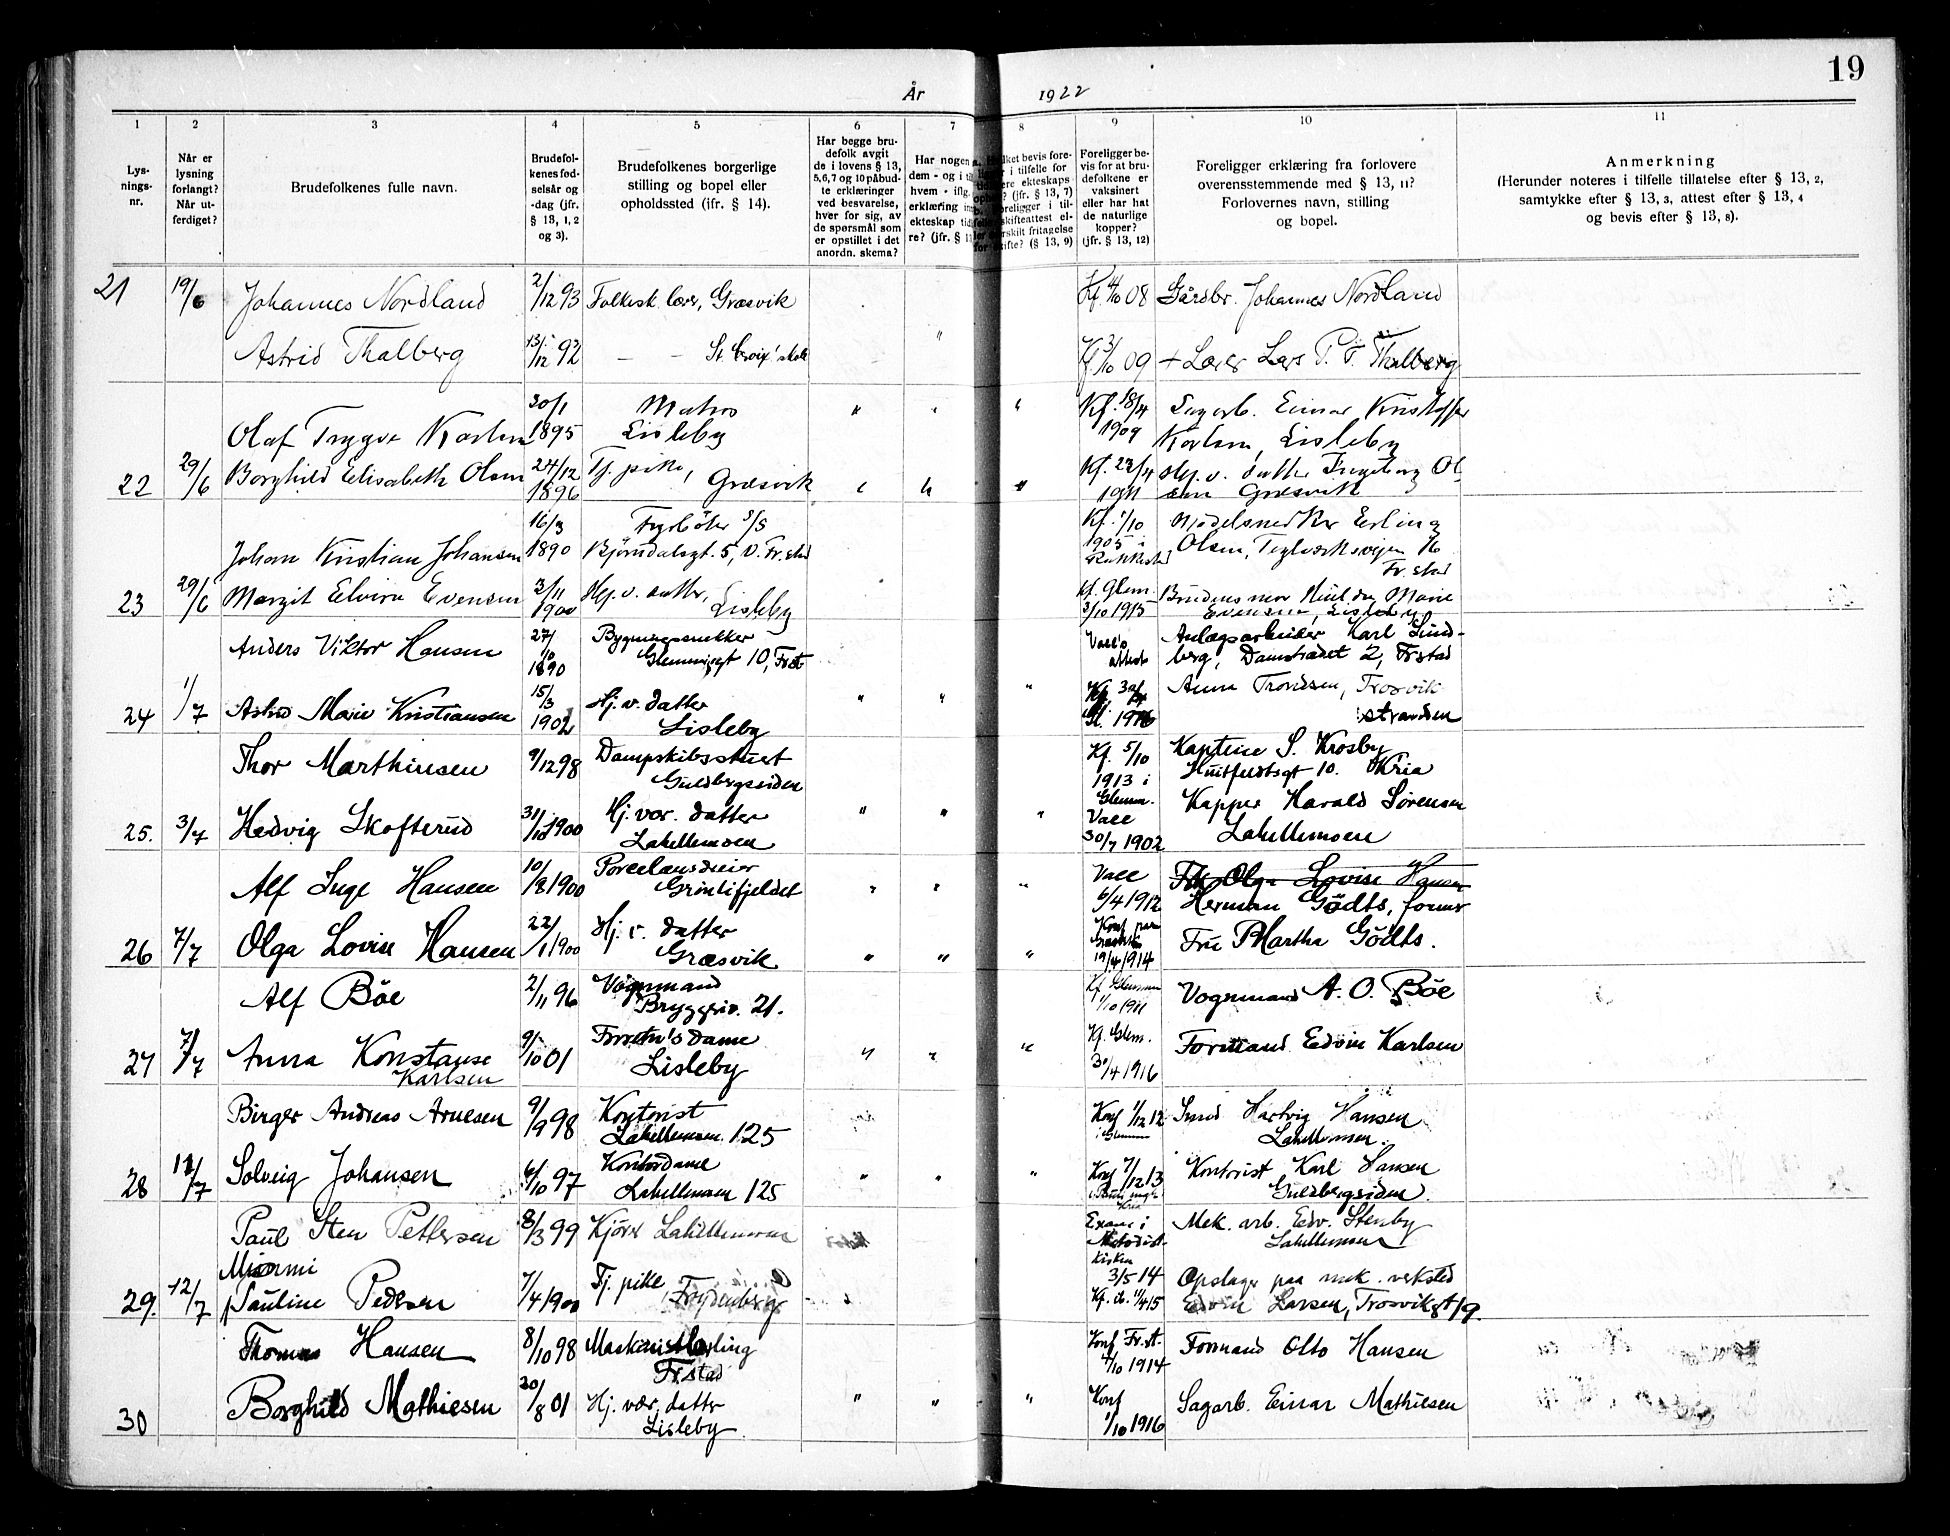 19
År 1922
1 2 3 4 5 6 7 8 9 10 11
Lys-
nings-
nr.
Når er
lysning
forlangt?
Når ut-
ferdiget?
Brudefolkenes fulle navn.
Brudefol-
kenes fød-
selsår og
-dag (jfr.
§ 13, 1, 2
og 3).
Brudefolkenes borgerlige
stilling og bopel eller
opholdssted (ifr. § 14).
Har begge bru-
defolk avgit
de i lovens § 13,
5,6,7 og 10 påbud-
te erklæringer
ved besvarelse,
hver for sig, av
de spørsmål som
er opstillet i det
anordn. skema?
Har nogen a
dem - og i til
hvem - iflg.
erklæring in
ekteskap tid
re? (jfr. § 1
ket bevis fore-
i tilfelle for
ere ekteskaps
? (jfr. § 13, 7)
b. oreligger i til-
skifteattest el-
rskilt fritagelse
for ifte? (§ 13, 9)
Foreligger be-
vis for at bru-
defolkene er
vaksinert
eller har hat
de naturlige
kopper?
(jfr. § 13, 12)
Foreligger erklæring fra forlovere
overensstemmende med § 13, 11?
Forlovernes navn, stilling
og bopel.
Anmerkning
(Herunder noteres i tilfelle tillatelse efter § 13, 2,
samtykke efter § 13, 3, attest efter § 13, 4
og bevis efter § 13, 8).
21 19/6 Johannes Nordland 2/12 93 Folkesk. lærer, Græsvik Kf. 4/10 08 Gårdbr. Johannes Nordland
Astrid Thalberg 13/12 92 — — St. Croix' skole " Kf 3/10 09 + Lærer Lars P. T. Thalberg
Olaf Trygve Karlsen 30/1 1895 Matros Lisleby " " " Kf. 18/4 1909 Sagarb. Einar Kristoffer
Karlsen, Lisleby
22 29/6 Borghild Elisabeth Olsen 24/12 1896 Tj. pike, Græsvik " " " Kf. 23/4 1911 Hj. v. datter Ingeborg Ol-
sen Græsvik
Johan Kristian Johansen 16/3 1890 Fyrbøter s/s
Bjørndalsgt. 5, V. Fr.stad Kf. 1/10 1905 i Modelsnedker Erling
Olsen, Teglverksveien 16
Fr.stad
23 29/6 Margit Elvira Evensen 3/11 1900 Hj. v. datter, Lisleby Kf. Glem. 3/10 1915 Brudens mor Hulda Marie
Evensen, Lisleby
Anders Viktor Hansen 27/10 1890 Bygningssnekker
Glemmigt 10, Frst. Vacc's attest Anlægsarbeider Karl Lund-
berg, Damstrædet 2, Frstad
24 1/7 Astrid Marie Kristiansen 15/3 1902 Hj. v. datter
Lisleby " " " Gl. 1916 Anna Trondsen, Trosvik-
stranden
Thor Marthinsen 9/12 98 Dampskibsstuert
Guldbergssiden Kf. 5/10 1913 i Glemm. Kaptein S. Krosby
Huitfeldtsgt 10. Kria
25. 3/7 Hedvig Skofterud 31/10 1900 Hj. vær. datter
Lahellemoen " " " Vacc 30/7 1902 Kapper Harald Sørensen
Lahellemoen
Alf Inge Hansen 10/8 1900 Porcelænsdreier
Grønlifjeldet " " " Vacc 6/4 1912 Frk Olga Lovise Hansen
Herman Gödts, former
26 7/7 Olga Lovise Hansen 22/1 1900 Hj. v. datter
Græsvik " " " Konf. paa 19/4 1914 Fru Martha Gödts.
Alf Böe 2/11 96 Vognmand
Bryggeriv. 21. Kf. Glemmen 1/10 1911 Vognmand A. O. Böe
27 7/7 Anna Konstanse
Karlsen 9/10 01 Forretn's dame
Lisleby " " " Kf. Glem. 30/4 1916 Formand Edvin Karlsen
Birger Andreas Arnesen 9/9 98 Kontorist
Lahellemoen 125 Konf 1/12 12 i Glemmen Smed Hartvig Hansen
Lahellemoen.
28 11/7 Solveig Johansen 6/10 97 Kontordame
Lahellemoen 125 " " " Konf 7/12 13 Kontorist Karl Hansen
Guldbergsiden.
Paul Sten Pettersen 8/3 99 Kjører Lahellemoen Exam i Metodist-
kirken 3/5 14 Mek. arb. Edv. Stenby
Lahellemoen
29. 12/7 Mimmi
Pauline Pedersen 7/4 1900 Tj. pike, Frydenberg Kf. 11/4 15 Opslager paa mek. verksted
Edvin Larsen, Trosvikgt 19.
Thomas Hansen 8/10 98 Maskinistlærling
Fr.stad Konf Fr.st. 4/10 1914 Formand Otto Hansen
30 Borghild Mathiesen 20/8 01 Hj. vær. datter
Lisleby " " " Konf 1/10 1916 Sagarb. Einar Mathiesen